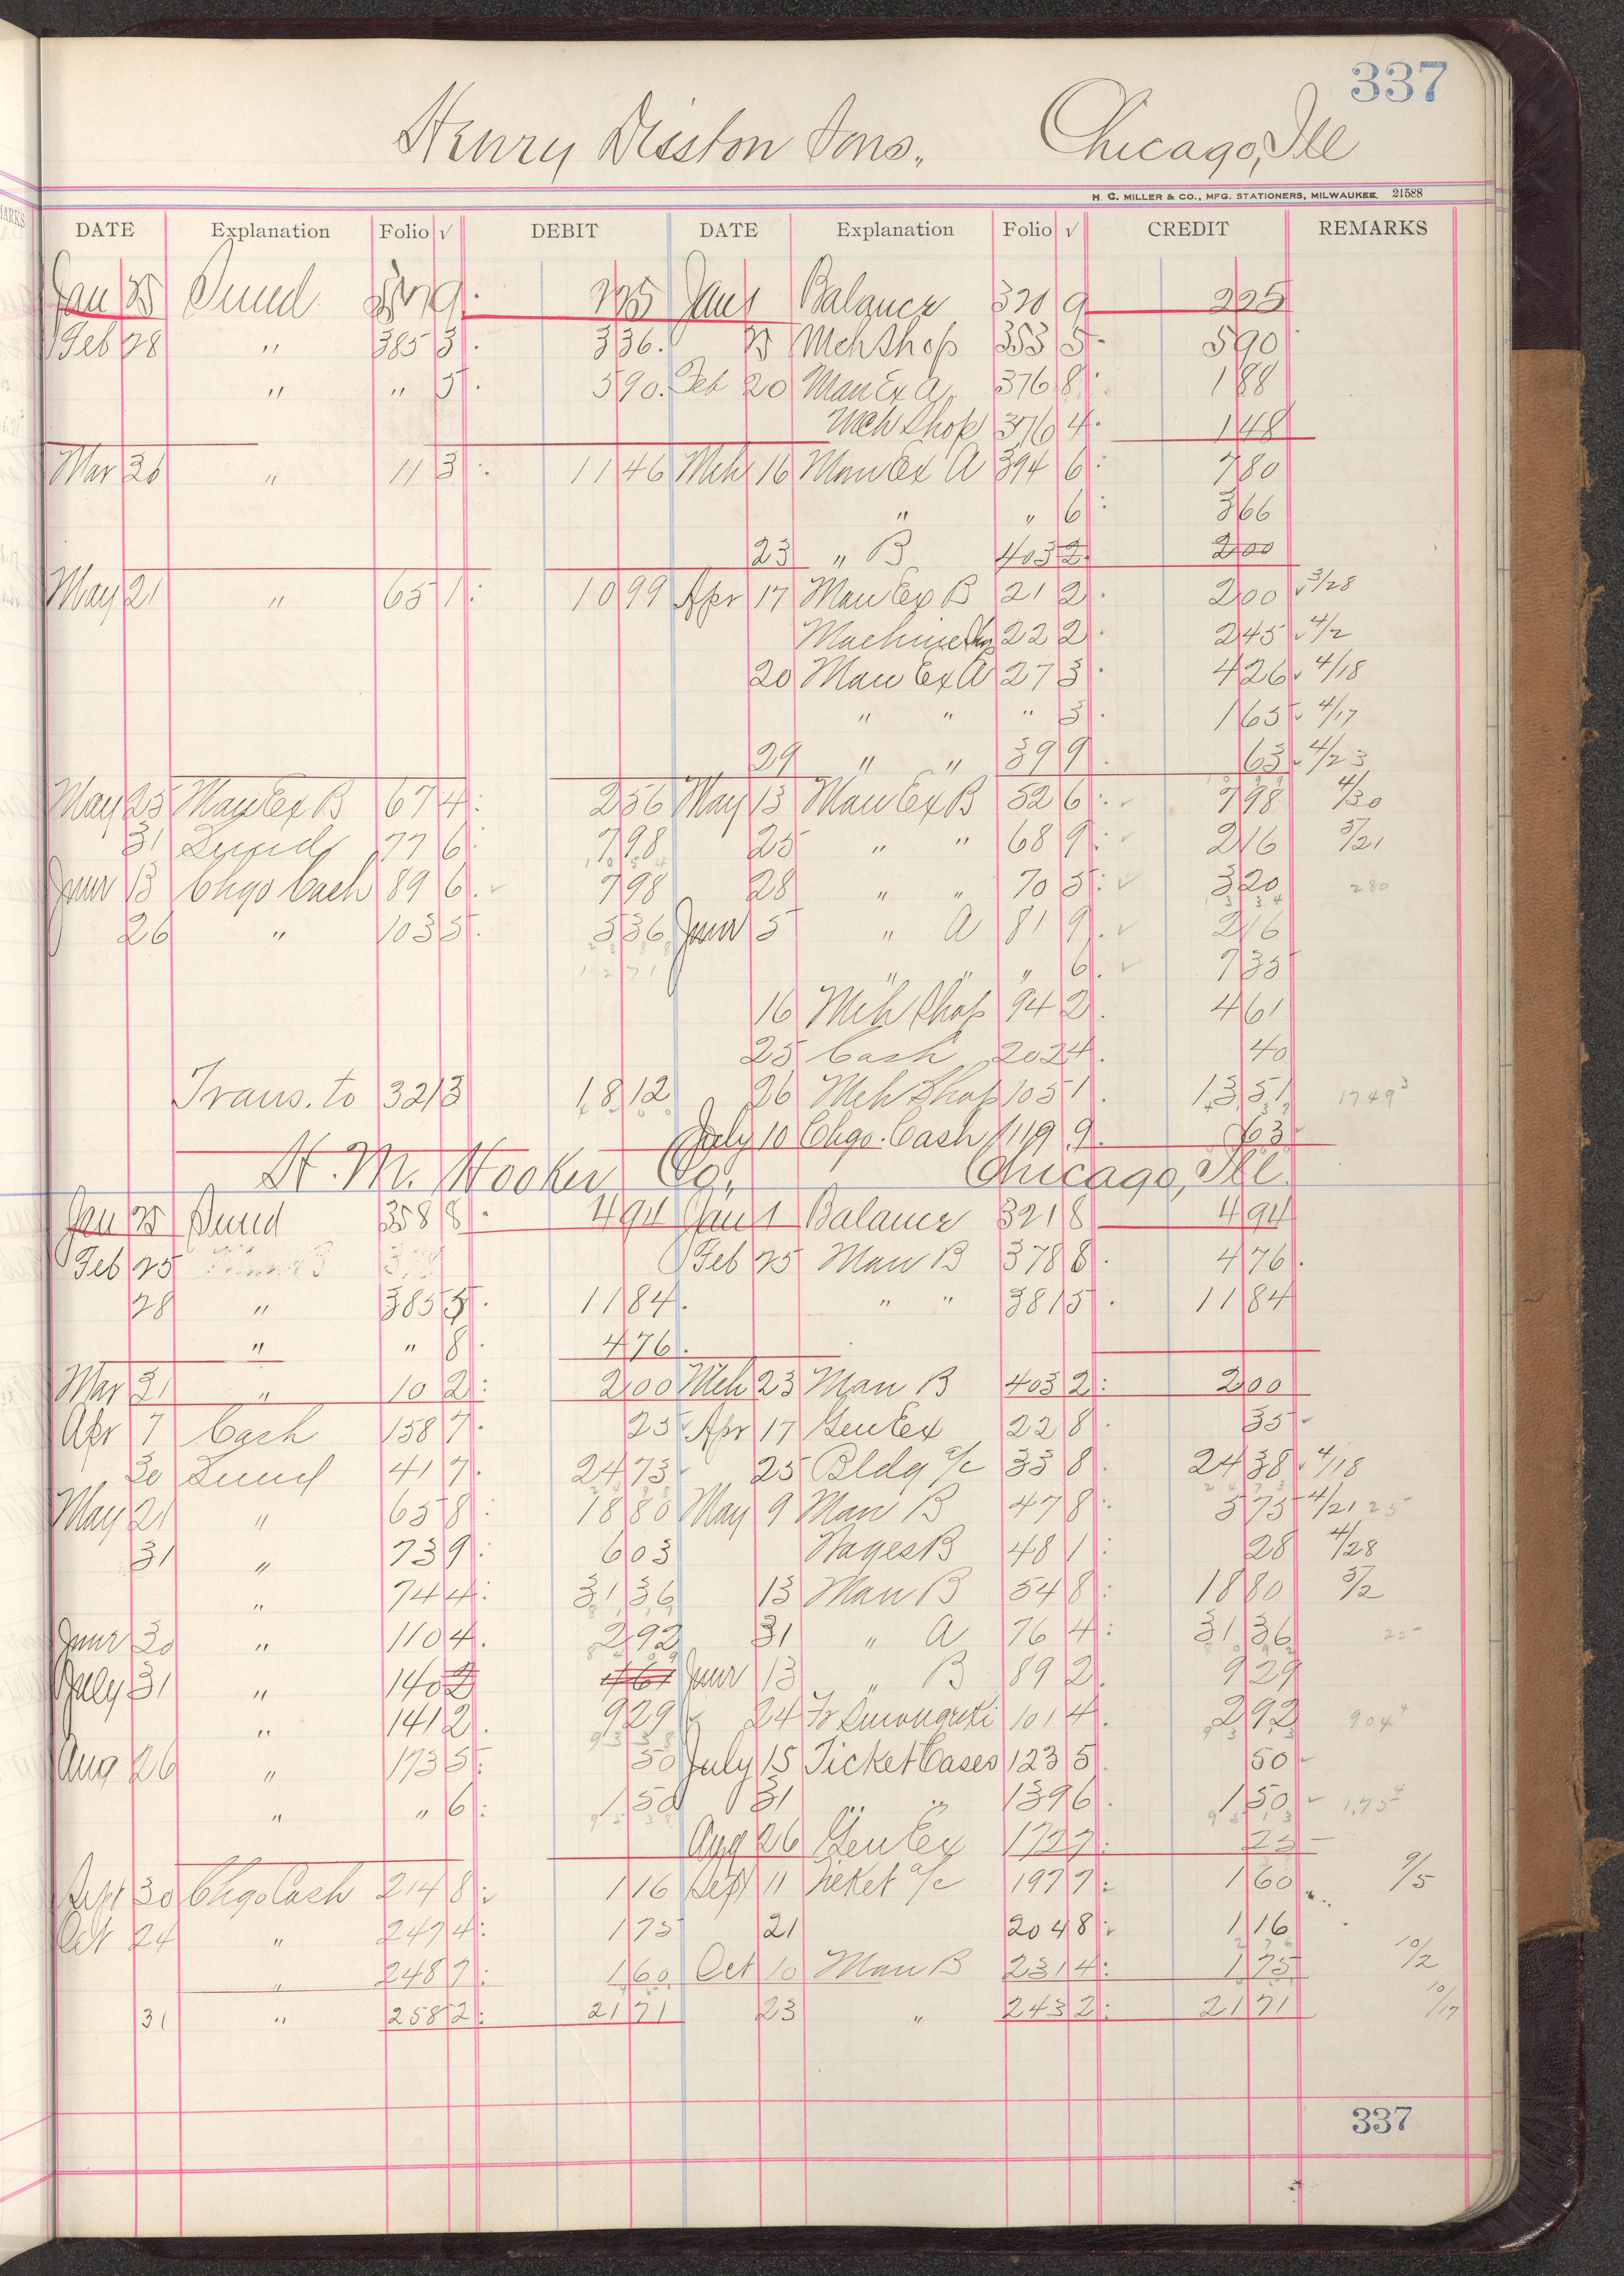 337
Henry Disston Sons. Chicago, Ill
H. C. MILLER & CO., MFG. STATIONERS, MILWAUKEE 21588
DATE Explanation Folio √ DEBIT DATE Explanation Folio √ CREDIT REMARKS
Jan 25 225 Jan 1 Balance 320 9 225
Feb 28 " 385 3 336. 25 Mch Shop 353 5 590
" " 5 590. Feb 20 Man Ex A 376 8 188
Mch Shop 376 4 148
Mar 20 " 11 3 11 46 Mch 16 Man Ex A 394 6 780
" " 6 366
23 " B 403 2 200
May 21 " 65 1 10 99 Apr 17 Man Ex B 21 2 200 3/28
22 2 245 4/2
20 Man Ex A 27 3 426 4/18
" " " 3 165 4/17
29 " " 39 9 63 4/23
May 25 Man Ex B 67 4 256 May 13 Man Ex B 52 6 798 4/30
31 77 6 798 25 " " 68 9 216 5/21
June 13 Chgo Cash 89 6 798 28 " " 70 5 320 280
26 " 103 5 536 June 5 " A 81 9 216
" " " 6 735
16 Mch Shop 94 2 461
25 Cash 202 4 40
Trans. to 321 3 18 12 26 Mch Shop 105 1 13 51 1749
July 10 Chgo. Cash 119 9 63
H. M. Hooker Co. Chicago, Ill.
Jan 25 358 8 494 Jan 1 Balance 321 8 494
Feb 25 Feb 25 Man B 378 8 476
28 " 385 5 11 84 " " 381 5 11 84
" " 8 476
Mar 21 " 10 2 200 Mch 23 Man B 403 2 200
Apr 7 Cash 158 7 25 Apr 17 Gen Ex 22 8 35
30 41 7 24 73 25 Bldg a/c 33 8 24 38 4/18
May 21 " 65 8 18 80 May 9 Man B 47 8 575 4/21 25
31 " 73 9 603 Wages B 48 1 28 4/28
" 74 4 31 36 13 Man B 54 8 18 80 5/2
June 30 " 110 4 292 31 " A 76 4 31 36 25
July 31 " 140 2 461 June 13 " B 89 2 929
" 141 2 929 24 101 4 292 904
Aug 26 " 173 5 50 July 15 Ticket Cases 123 5 50
" " 6 150 31 " 139 6 150 1,75
Aug 26 Gen Ex 172 7 23
Sept 30 Chgo Cash 214 8 116 Sept 11 Ticket a/c 197 7 160 9/5
Oct 24 " 247 4 175 21 204 8 116
" 248 7 160 Oct 10 Man B 231 4 175 10/2
31 " 258 2 21 71 23 " 243 2 21 71 10/17
337